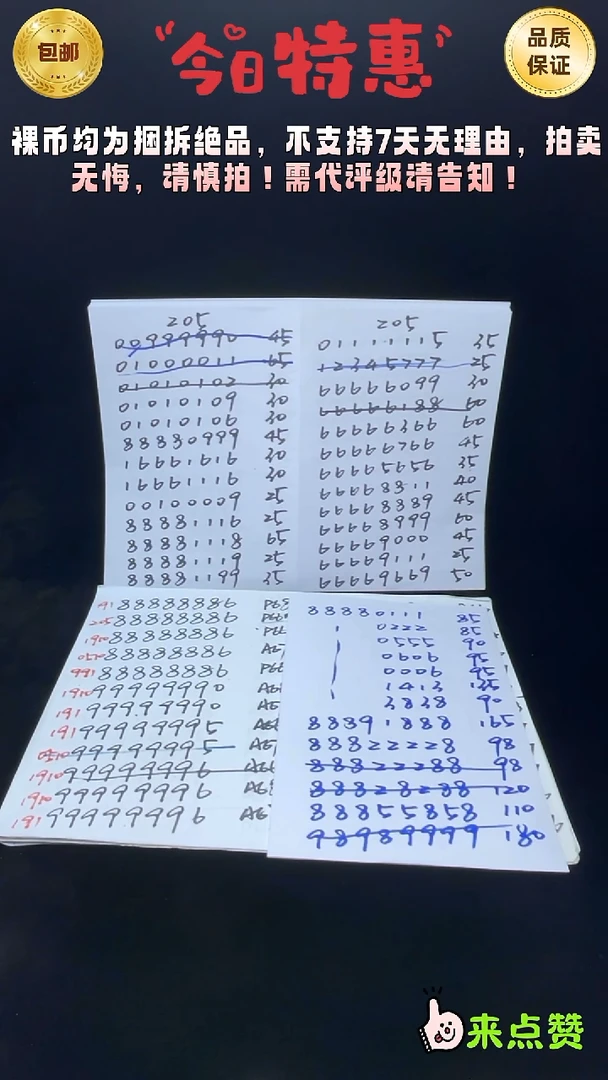 包邮
今日特惠
品质
保证
裸币均为捆拆绝品，不支持7天无理由，拍卖
无悔，请慎拍！需代评级请告知！
205
00999990 45
01000011 65
01010102 30
01010109 30
01010106 30
88880999 45
16661616 30
16661116 30
00100009 25
88881116 25
88881118 65
88881119 25
88881199 35
205
01111115 35
12345777 25
66666099 30
66666188 60
66666366 60
66666766 45
66665656 35
66668811 40
66668889 45
66668999 60
66669000 45
66669111 25
66669669 50
191 88888886
205 88888886
1910 88888886
0510 88888886
991 88888886
1910 99999990
191 99999990
191 99999995
0510 99999995
1910 99999996
1910 99999996
191 99999996
88880111 85
0222 85
0555 90
0606 95
0006 95
1413 135
3838 90
88891888 165
88822228 98
88822288 98
88828288 120
88855858 110
98989999 180
来点赞